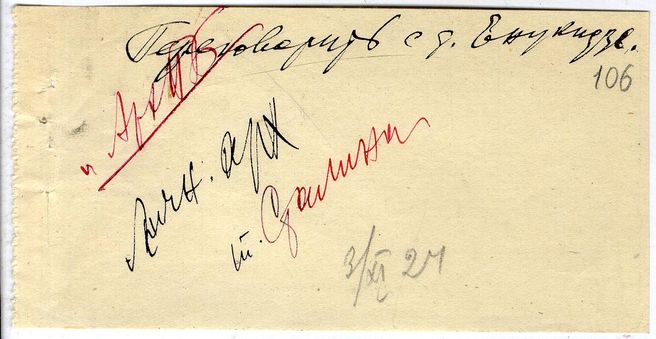 Переговорить с т. Енукидзе.
106
"Арх
Личн. арх
т. Сталина
3/XI 27